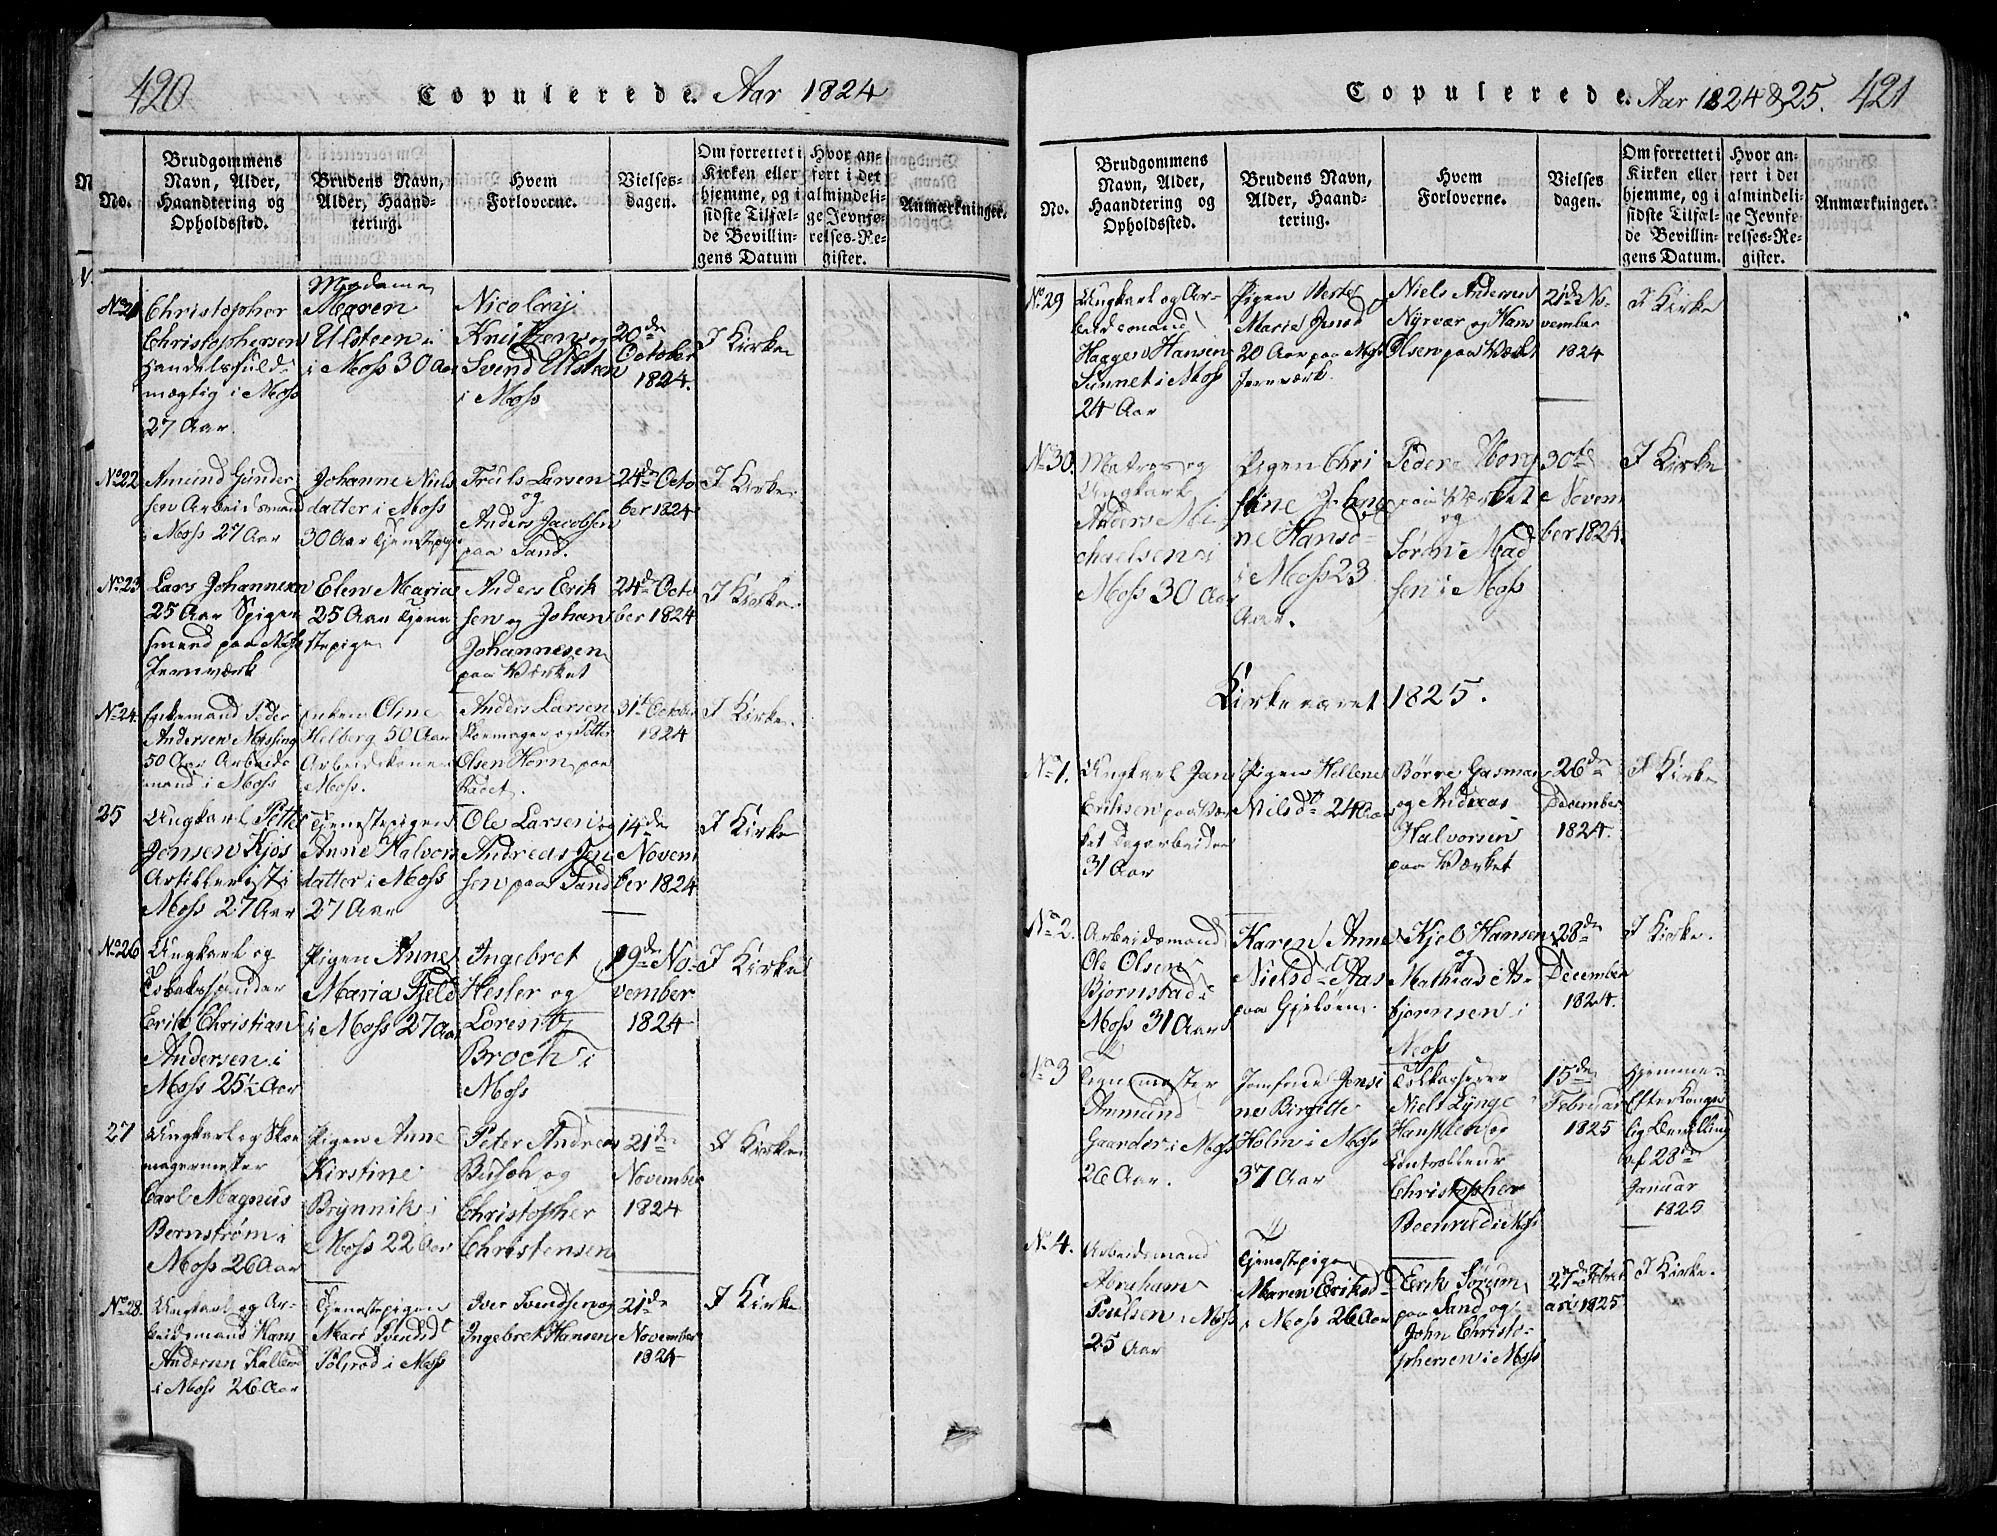 420
Copulerede. Aar 1824
No.
Brudgommens Navn, Alder, Haandtering og Opholdssted.
Brudens Navn, Alder, Haandtering.
Hvem Forloverne.
Vielsesdagen.
Om forrettet i Kirken eller hjemme, og i sidste Tilfælde Bevillingens Datum
Hvor anført i det almindelige Jevnførelses-Register.
Anmærkninger.
No 21
Christopher
Christophersen
Handelsfuld-
mægtig i Moss
27 Aar.
Madame
Maren
Ulsteen
i Moss 30 Aar
Nicolay
Knutzen og
Svend Ulsteen
i Moss
20de
October
1824.
I Kirke
No 22
Amund Gunder
sen Arbeidsmand
i Moss 27 Aar
Johanne Niels
datter i Moss
30 Aar Tjenestepige
Truls Larsen
og
Anders Jacobsen
paa Sand.
24de Octo
ber 1824
I Kirke.
No 23
Lars Johannesen
25 Aar Spiger
smed paa Moss
Jernværk
Elen Maria
25 Aar Tjene
stepige
Anders Erik
sen og Johan
Johannesen
paa Værket
24de Octo
ber 1824
I Kirke.
No 24.
Enkemand Peder
Andersen Myssing
50 Aar Arbeids
mand i Moss
Enken Oline
Helberg 50 Aar
Arbeidskone
Moss.
Anders Larsen
Skomager og Petter
Olsen Horn paa
31te October
1824
I Kirke.
25
Ungkarl Petter
Jensen Kjøs
Artillerist i
Moss 27 Aar
Tjenestepigen
Anne Halvors
datter i Moss
27 Aar
Ole Larsen og
Andreas Jen
sen paa Sand
14de
Novem
ber 1824
I Kirke
No 26
Ungkarl og
Tobaksspinder
Erik Christian
Andersen i
Moss 25½ Aar
Pigen Anne
Maria Fjeld
i Moss 27 Aar
Ingebret
Hesler og
Lorentz
Broch i
Moss
19de No-
vember
1824
I Kirke
27
Ungkarl og Skoe
magermester
Carl Magnus
Bernstrøm i
Moss 26 Aar
Pigen Anne
Kirstine
Brynnik i
Moss 22 Aar
Peter Andreas
Busch og
Christopher
Christensen
21de
November
1824
I Kirke
No 28.
Ungkarl og Ar-
beidsmand Hans
Andersen Kallerød
i Moss 26 Aar
Tjenestepigen
Mari Svendsd
i Moss
Iver Svendsen og
Ingebret Hansen
21de
November
1824
I Kirke
Copulerede. Aar 1824 & 25. 421
No.
Brudgommens Navn, Alder, Haandtering og Opholdssted.
Brudens Navn, Alder, Haandtering.
Hvem Forloverne.
Vielsesdagen.
Om forrettet i Kirken eller hjemme, og i sidste Tilfælde Bevillingens Datum.
Hvor anført i det almindelige Jevnførelses-Register.
Anmærkninger.
No 29
Ungkarl og Ar-
beidsmand
Haagen Hansen
Sunnet i Moss
24 Aar
Pigen
Maria Jensd
20 Aar paa Moss
Jernværk.
Niels Andersen
Nyrvær og Hans
Olsen paa Værket
21de No-
vember
1824
I Kirke
No 30.
Matros og
Ungkarl
Anders Mi
chaelsen i
Moss 30 Aar
Pigen Chri
stine Johan
ne Hansd
i Moss 23
Aar.
Peder
paa Værket
og
Søren Mad
sen i Moss
30te
Novem
ber 1824.
I Kirke
Kirkeaaret 1825.
No 1.
Ungkarl Jan
Eriksen paa Vær
ket Dagarbeider
31 Aar
Pigen Hellene
Nielsd 24 Aar
Børre Gasman
og Andreas
Halvorsen
paa Værket
26de
December
1824.
I Kirke
No 2.
Arbeidsmand
Ole Olsen
Bjørnstad i
Moss 31 Aar
Karen Anne
Nielsd Aas
paa Gjeløen.
Kjel Hansen
og
Mathias As-
bjørnsen i
Moss
28de
December
1824.
I Kirke.
No 3
mester
Amund
Gaarder i Moss
26 Aar.
Jomfrue Jensi
ne Birgitte
Holm i Moss
37 Aar
Toldkasserer
Niels Lynge
Hansteen og
Controlleur
Christopher
i Moss
15de
Februar
1825
Hjemme
Efter Konge
lig Bevilling
af 28de
Januar
1825
No 4.
Arbeidsmand
Abraham
Poulsen i Moss
25 Aar
Tjenestepige
Maren Eriksd
i Moss 26 Aar
Erik Sørum
paa Sand og
John Christo-
phersen i Moss
27de Febru
ari 1825
I Kirke.